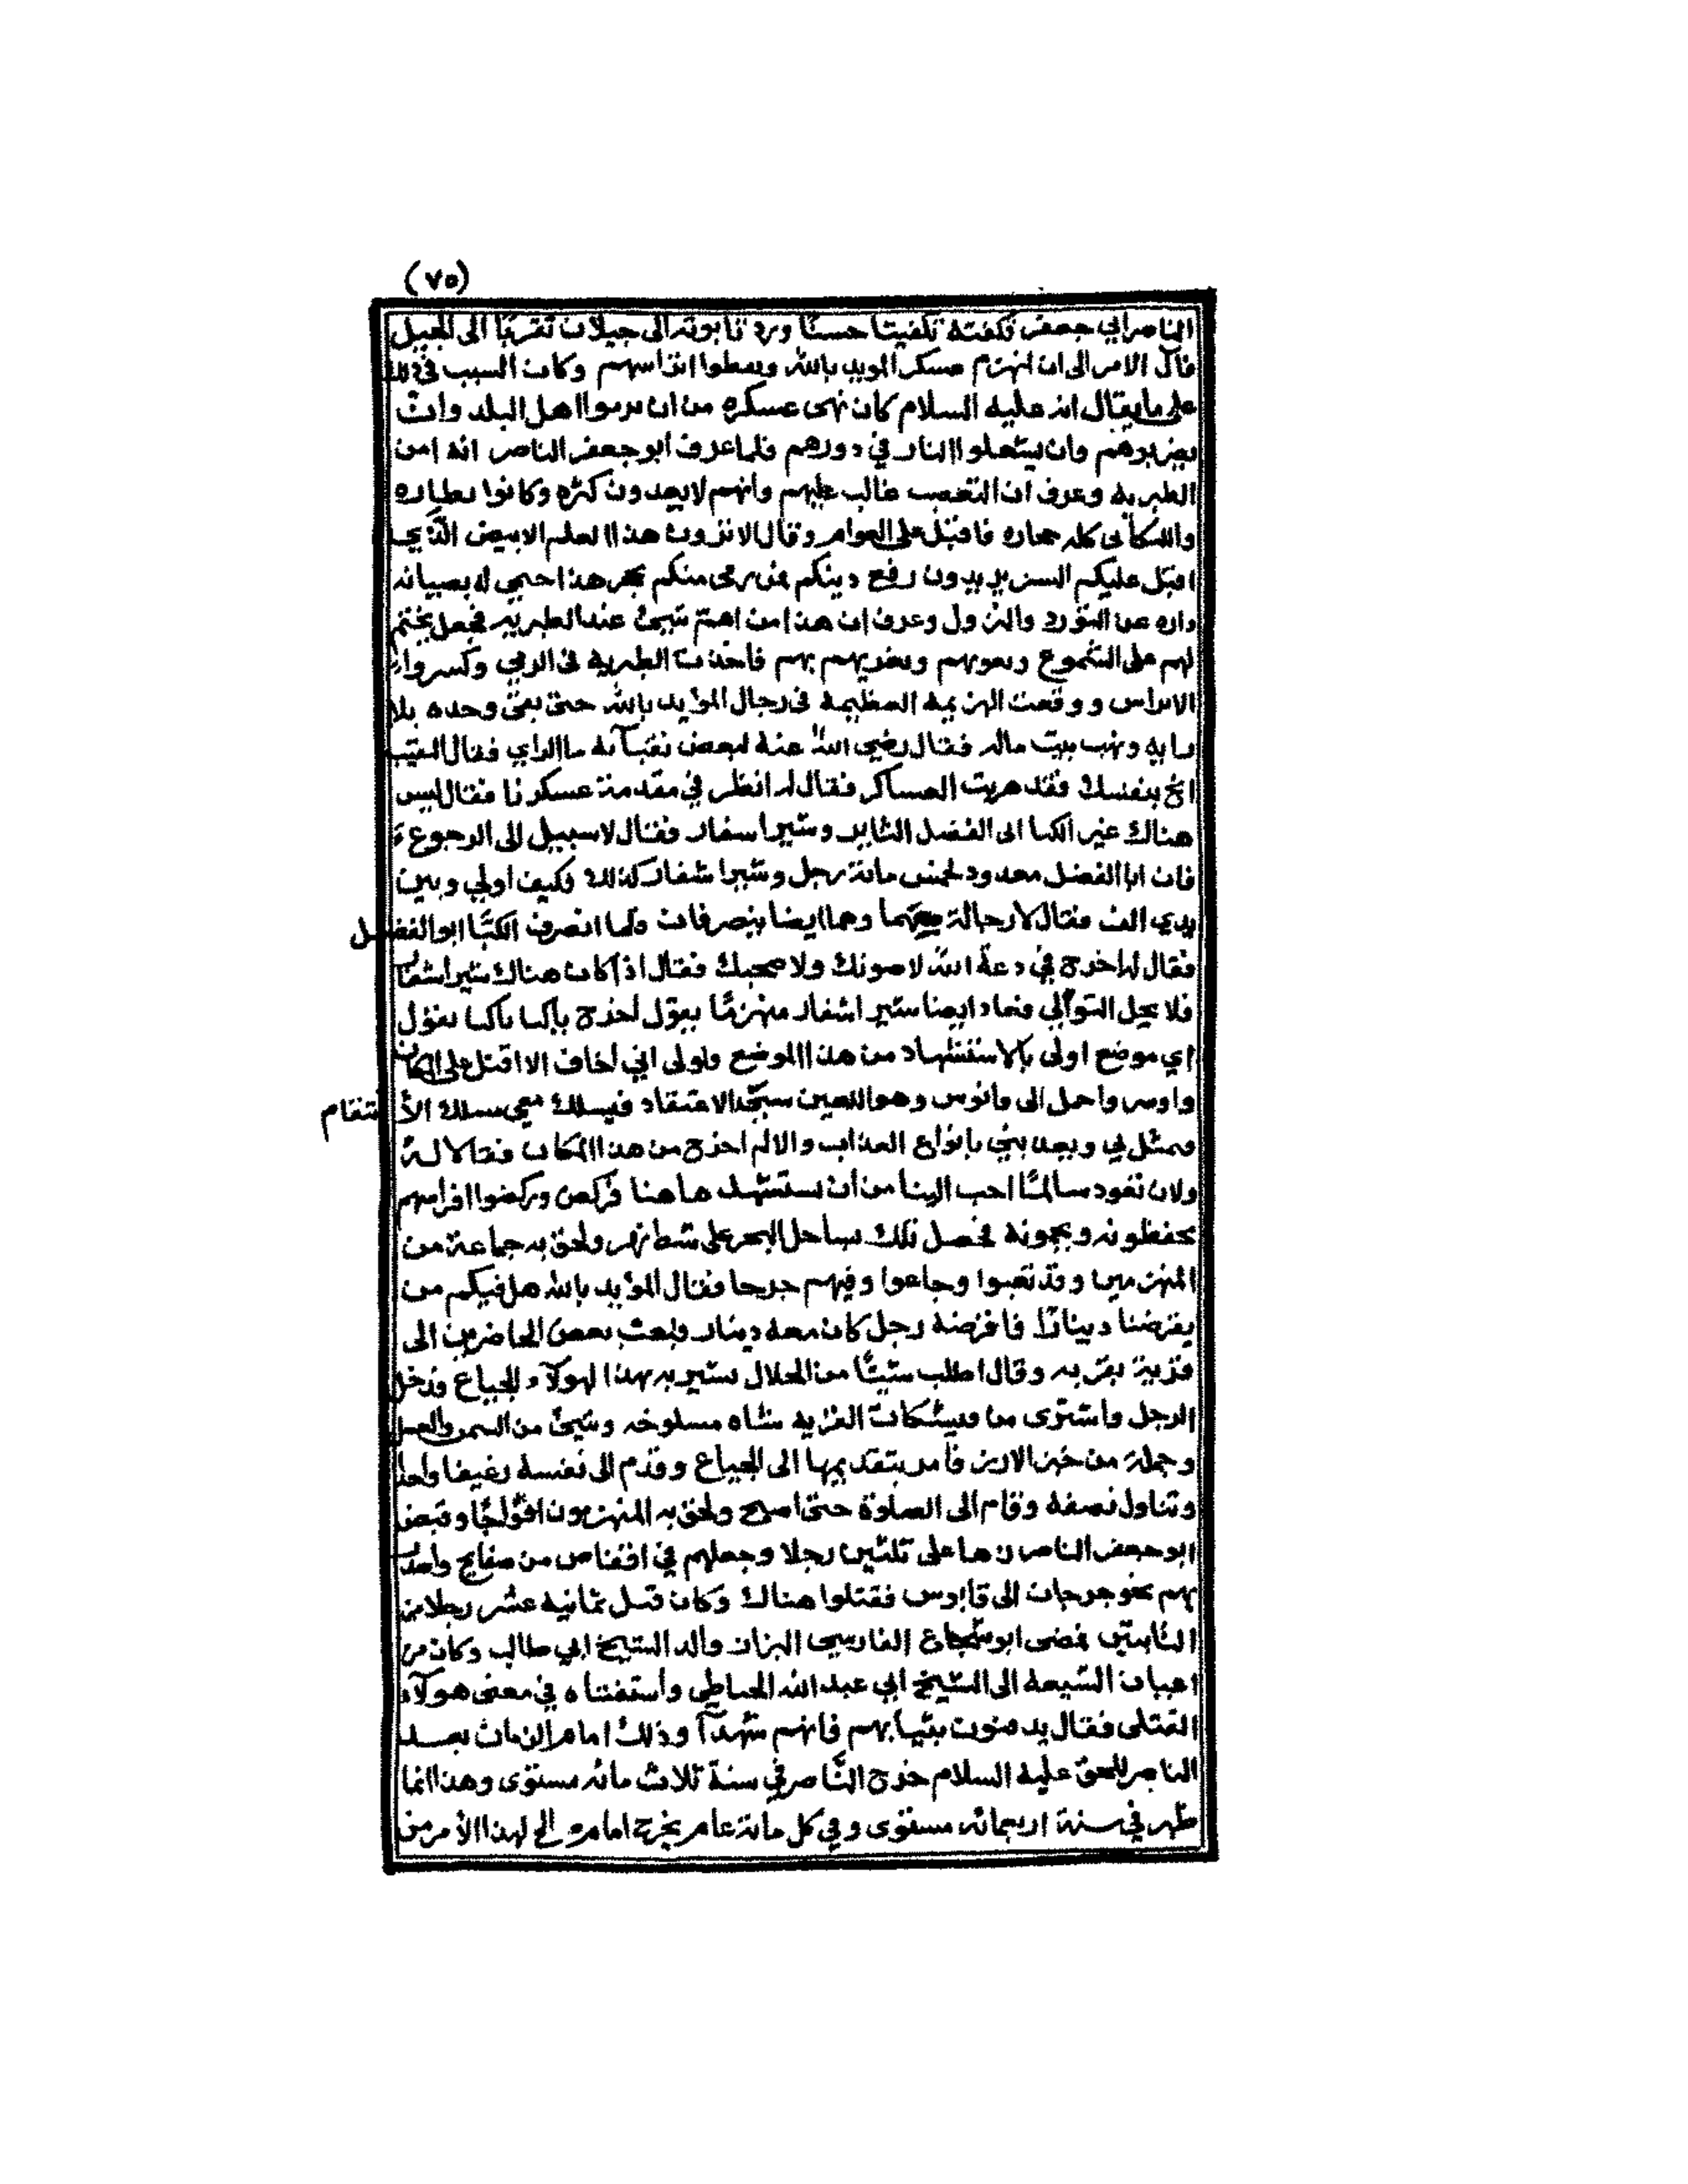 (٧٥)
الناصر ابي جعفر تكفنه تكفينا حسنا ورد تابوته الى جيلان تقربا الى الجبيل
فآل الامر الى ان انهزم عسكر المويد بالله وكان السبب في ذلك
على ما يقال انه عليه السلام كان نهى عسكره من ان يرموا اهل البلد وان
يضربوهم وان يشعلوا النار في دورهم فلما عرف ابو جعفر الناصر انه امن
الطبرية وعرف ان التعصب غالب عليهم وانهم لا يعدون كثره وكانوا
فاقبل على العوام وقال الا ترون هذا العلم الابيض الذي
اقبل عليكم يريدون رفع دينكم فمن رمى منكم بحجر هذا
داره عن التورد والنزول وعرف ان هذا من اهم شيئ عند الطبريه فجعل يختم
لهم على الشموع ويغريهم بهم فاخذت الطبريه في الرمي وكسروا
ووقعت الهزيمة العظيمة في رجال المؤيد بالله حتى بقى وحده بلا
ونهب بيت ماله فقال رضي الله عنه لبعض نقبآئه ما الراي فقال النقيب
انج بنفسك فقد هربت العساكر فقال له انظر في مقدمة عسكرنا فقال ليس
هناك غير الكيا ابى الفضل الثاير وشيرا سفار فقال لا سبيل الى الرجوع
فان ابا الفضل معدود لخمس مائة رجل وشيرا شفار كذلك وكيف اولي وبين
يدي الف فقال لا رجالة معهما وهما ايضا ينصرفان ولما انصرف الكيا ابو الفضل
فقال له اخرج في دعة الله لاصونك ولا صحبك فقال اذا كان هناك شيرا شفار
فلا يحل التوالي فعاد ايضا شير اشفار منهزما يقول اخرج ياكيا ياكيا يقول
اي موضع اولى بالاستشهاد من هذا الموضع ولولى اني اخاف الا اقتل على المكان
واوسر واحمل الى قانوس وهو اللعين سيئ الاعتقاد فيسلك معي مسلك الانتقام
فيمثل بي ويعذبني بانواع العذاب والالم اخرج من هذا المكان فقالا له
ولان تعود سالما احب الينا من ان تستشهد هاهنا فركض وركضوا افراسهم
يحفظونه ويحمونه فحصل تلك بساحل البحر على شط نهر ولحق به جماعة من
المنهزمين وقد تعبوا وجاعوا وفيهم جرحا فقال المؤيد بالله هل فيكم من
يقرضنا دينارا فاقرضه رجل كان معه دينار فبعث بعض الحاضرين الى
قرية بقربه وقال اطلب شيئا من الحلال نشير به بهذا لهولآء الجياع فدخل
الرجل واشترى من القريه شاه مسلوخه وشيئ من السمن والعسل
وجملة من خبز الارز فامر بتقديمها الى الجياع وقدم الى نفسه رغيفا واحدا
وتناول نصفه وقام الى الصلوة حتى اصبح ولحق به المنهزمون افواجا وقبض
ابو جعفر الناصر على ثلثين رجلا وجعلهم في اقفاص من صفايح
بهم نحو جرجان الى قابوس فقتلوا هناك وكان قتل ثمانيه عشر رجلا من
الثابتين فمضى ابو شجاع الفارسي البزاز والد الشيخ ابي طالب وكان من
اعيان الشيعه الى الشيخ ابي عبد الله الحناطي واستفتاه في معنى هولآء
القتلى فقال يدفنون بثيابهم فانهم شهدآ وذلك امام الزمان بعد
الناصر للحق عليه السلام خرج الناصر في سنة ثلاث مائه مستوى وهذا انما
ظهر في سنة اربعمائه مستوى وفي كل مائة عام يخرج امام لهذا الأمر من